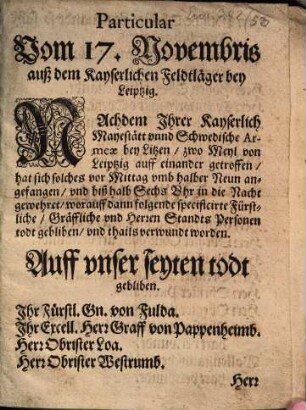 Particular
Vom 17. Novembris
auß dem Kayserlichen Feldtläger bey
Leiptzig.
NAchdem Ihrer Kayserlich
Mayestätt vnnd Schwedische Ar-
meæ bey Litzen / zwo Meyl von
Leiptzig auff einander getroffen /
hat sich solches vor Mittag vmb halber Neun an-
gefangen / vnd biß halb Sechs Vhr in die Nacht
gewehret / worauff dann folgende specificirte Fürst-
liche / Gräffliche vnd Herren Standts Personen
todt gebliben / vnd thails verwundt worden.
Auff vnser seyten todt
gebliben.
Ihr Fürstl. Gn. von Fulda.
Ihr Excell. Herr Graff von Pappenheimb.
Herr Obrister Loa.
Herr Obrister Westrumb.
Herr